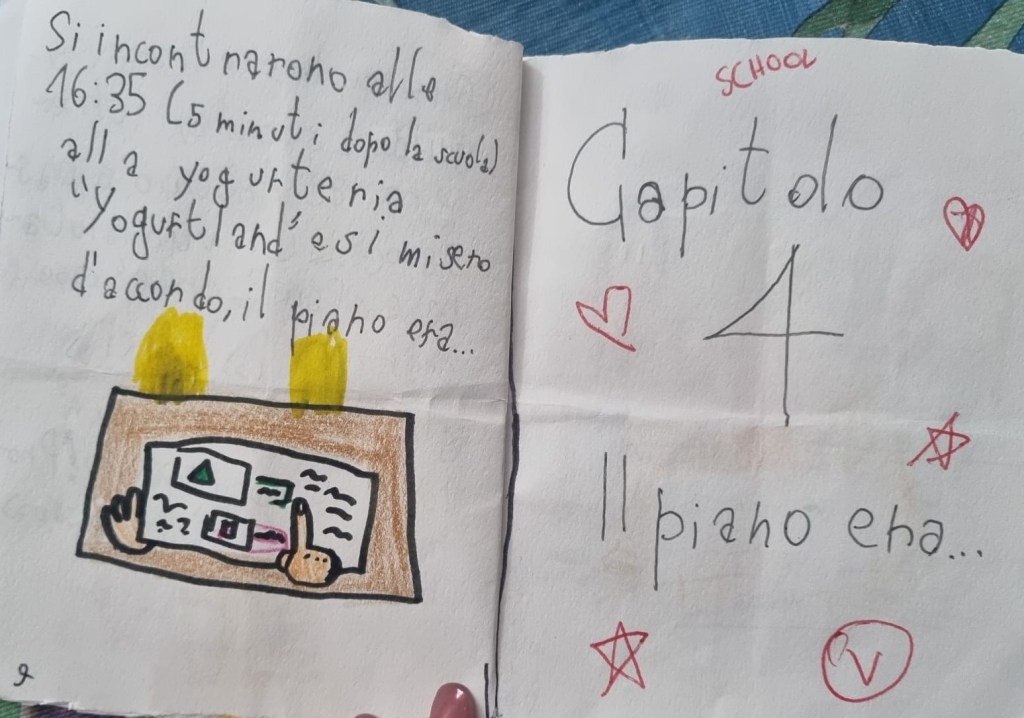 Si incontrarono alle
16:35 (5 minuti dopo la scuola)
alla yogurteria
"Yogurtland" e si misero
d'accordo, il piano era...
9
SCHOOL
Capitolo
4
Il piano era...
V